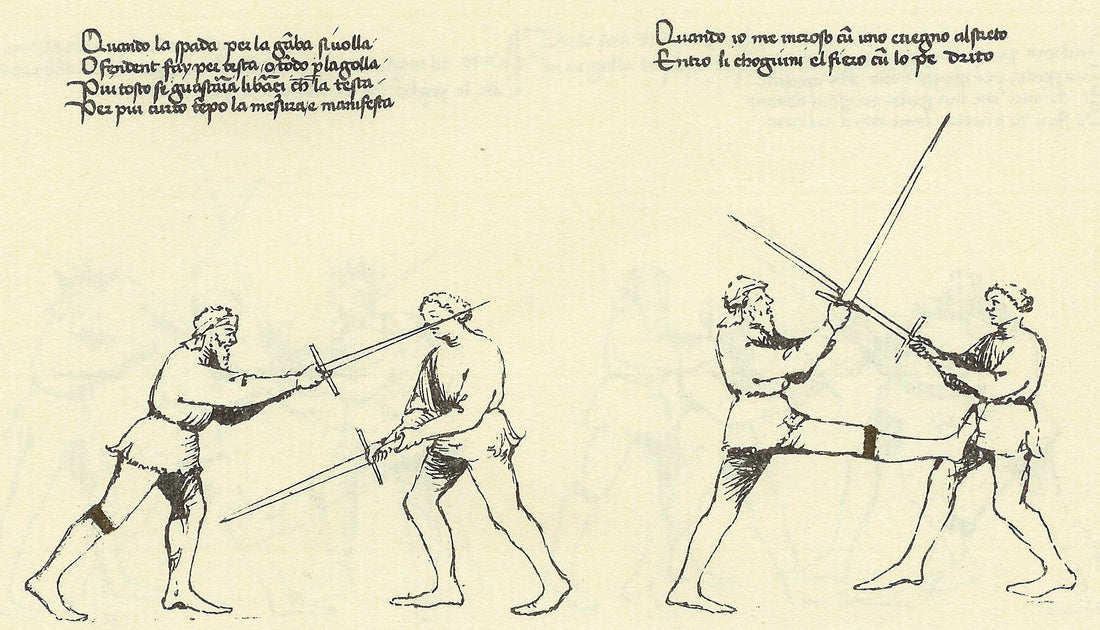 Quando la spada per la gãba si uolla
O fendent fay per testa o tõdo p̱ la golla
Piui tosto se guastaria li braçi ch̃ la testa
Per piui curto tẽpo la mesura e manifesta
Quando io me incroso cũ uno enegno al streto
Entro li chogiuini el fiero cũ lo pe drito